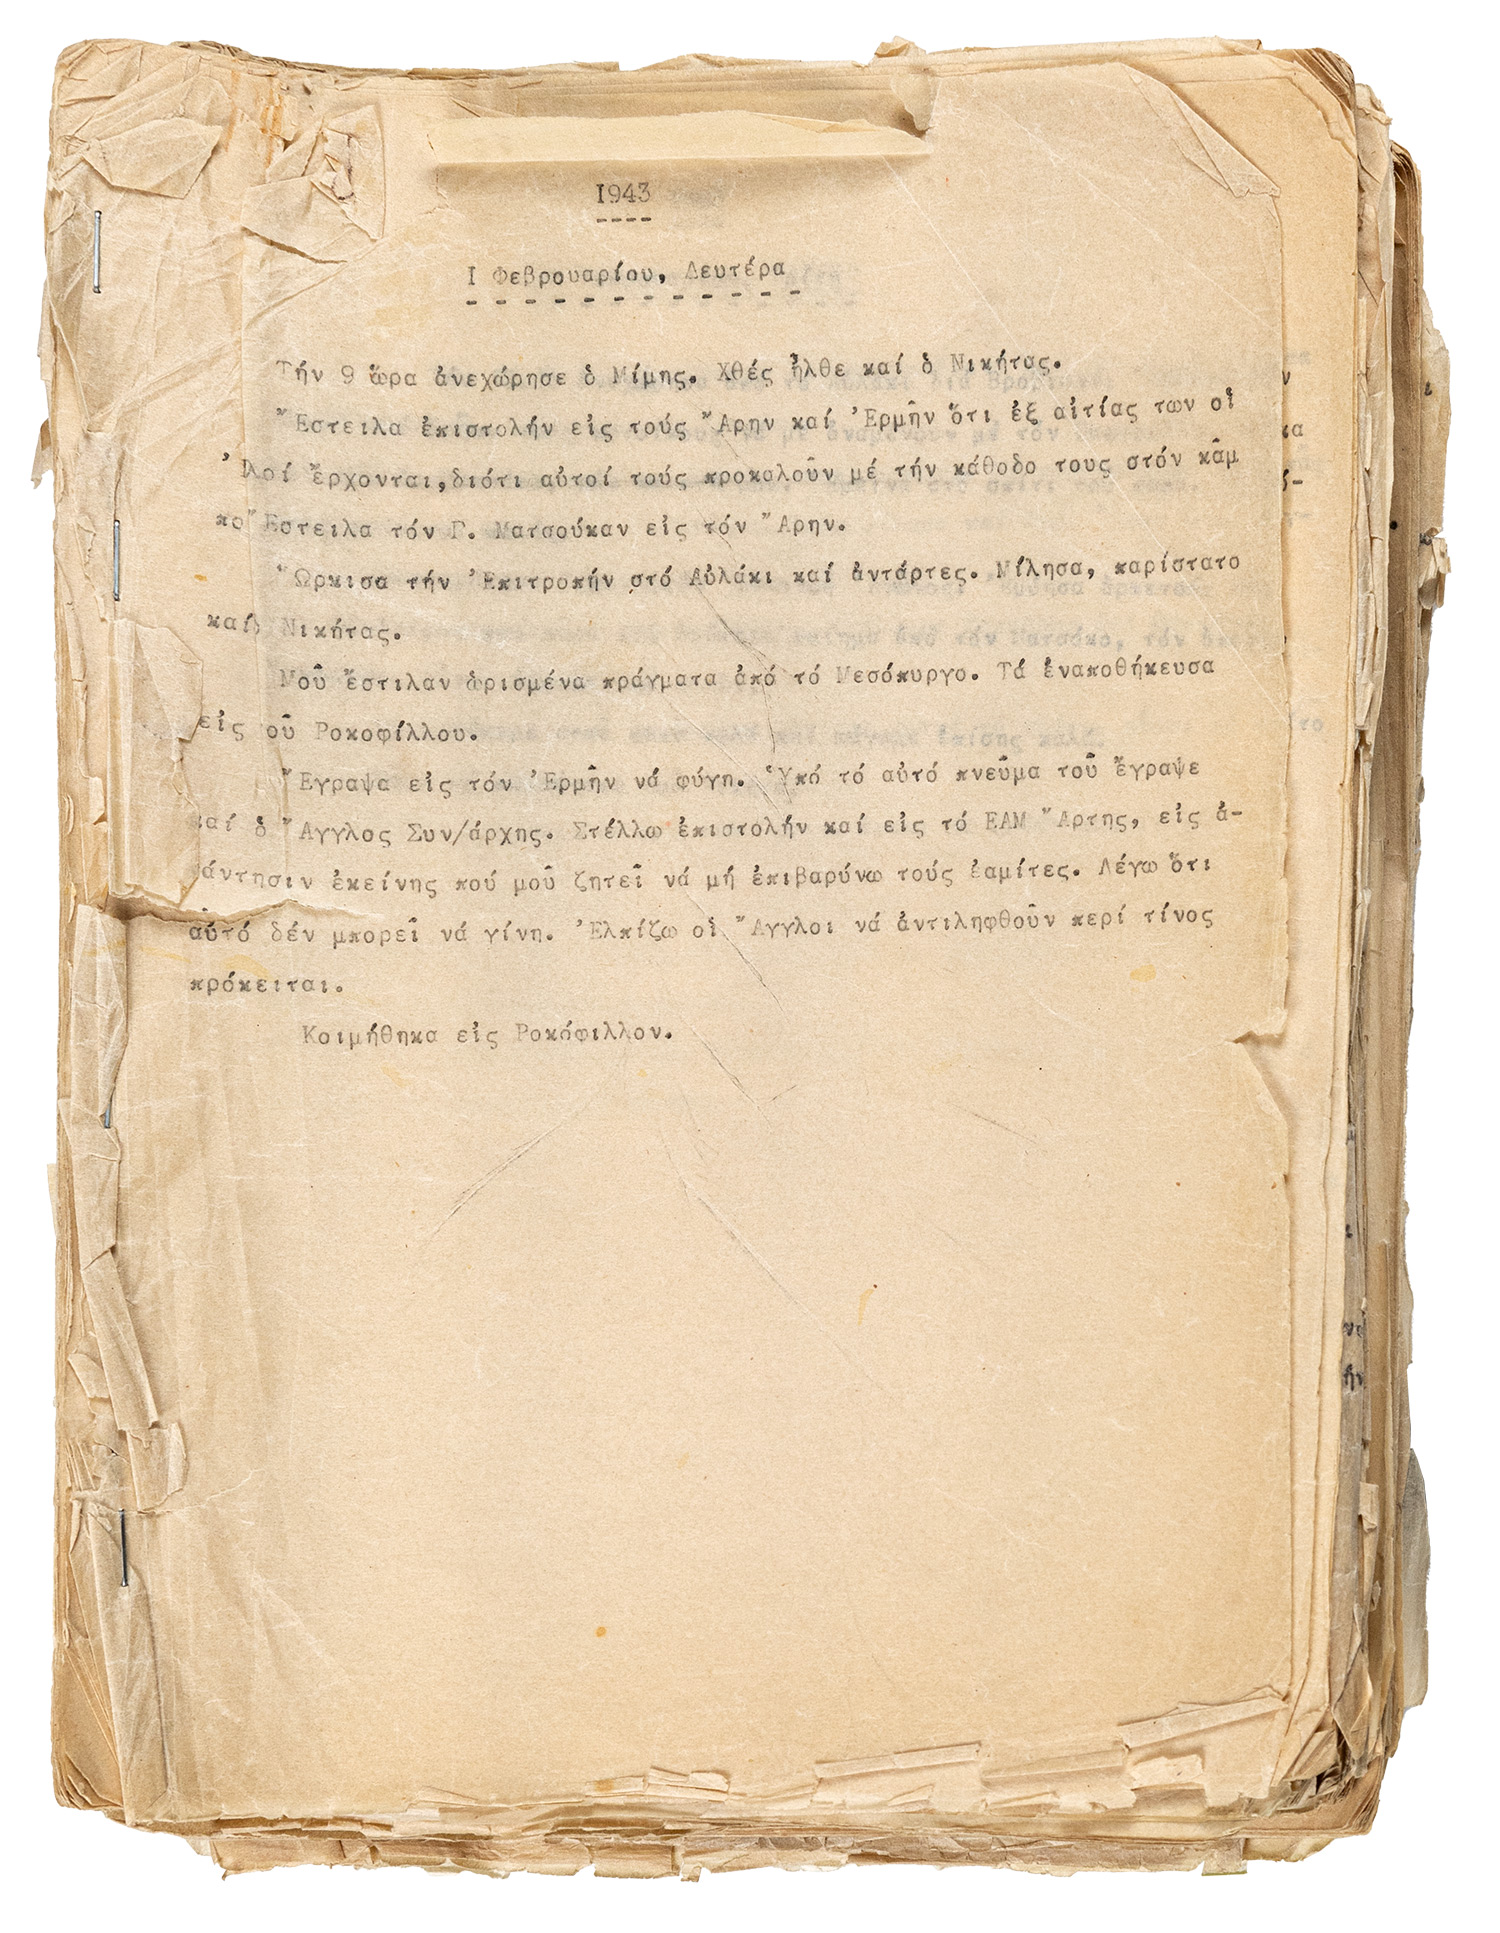 1943
Ι Φεβρουαρίου, Δευτέρα
Τήν 9 ὥρα ἀνεχώρησε ὁ Μίμης. Χθές ἦλθε καί ὁ Νικήτας.
Ἔστειλα ἐπιστολήν εἰς τούς Ἄρην καί Ἑρμῆν ὅτι ἐξ αἰτίας των οἱ
ἔρχονται,διότι αὐτοί τούς προκαλοῦν μέ τήν κάθοδο τους στόν κᾶμ
πο Ἔστειλα τόν Γ. Ματσούκαν εἰς τόν Ἄρην.
Ὥρκισα τήν Ἐπιτροπήν στό Αὐλάκι καί ἀντάρτες. Μίλησα, παρίστατο
καί Νικήτας.
Μοῦ ἔστιλαν ὁρισμένα πράγματα ἀπό τό Μεσόπυργο. Τά ἐναποθήκευσα
εἰς οῦ Ροκοφίλλου.
Ἔγραψα εἰς τόν Ἑρμῆν νά φύγη. Ὑπό τό αὐτό πνεῦμα τοῦ ἔγραψε
καί ὁ Ἄγγλος Συν/άρχης. Στέλλω ἐπιστολήν καί εἰς τό ΕΑΜ Ἄρτης, εἰς ἀ-
άντησιν ἐκείνης πού μοῦ ζητεῖ νά μή ἐπιβαρύνω τούς ἐαμίτες. Λέγω ὅτι
αὐτό δέν μπορεῖ νά γίνη. Ἐλπίζω οἱ Ἄγγλοι νά ἀντιληφθοῦν περί τίνος
πρόκειται.
Κοιμήθηκα εἰς Ροκόφιλλον.